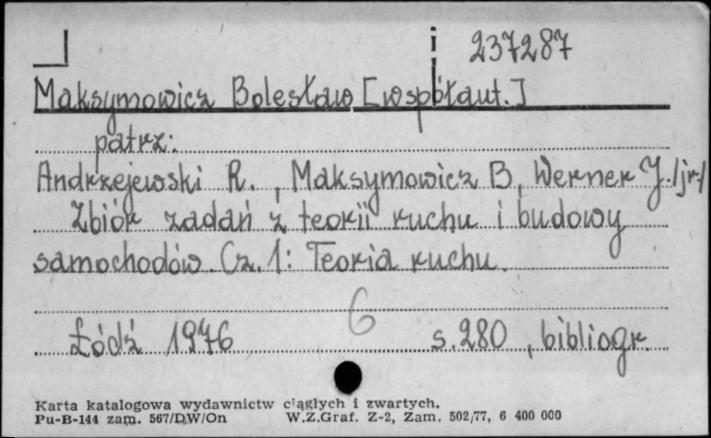 i 237287
Maksymowicz Bolesław [współaut.]
patrz:
Andrzejewski R., Maksymowicz B, Werner J./jr/
Zbiór zadań z teorii ruchu i budowy
samochodów. Cz. 1: Teoria ruchu.
6
Łódź 1976 s. 280, bibliogr.
Karta katalogowa wydawnictw ciągłych i zwartych.
Pu-B-144 zam. 567/DW/On W.Z.Graf. Z-2, Zam. 502/77, 6 400 000